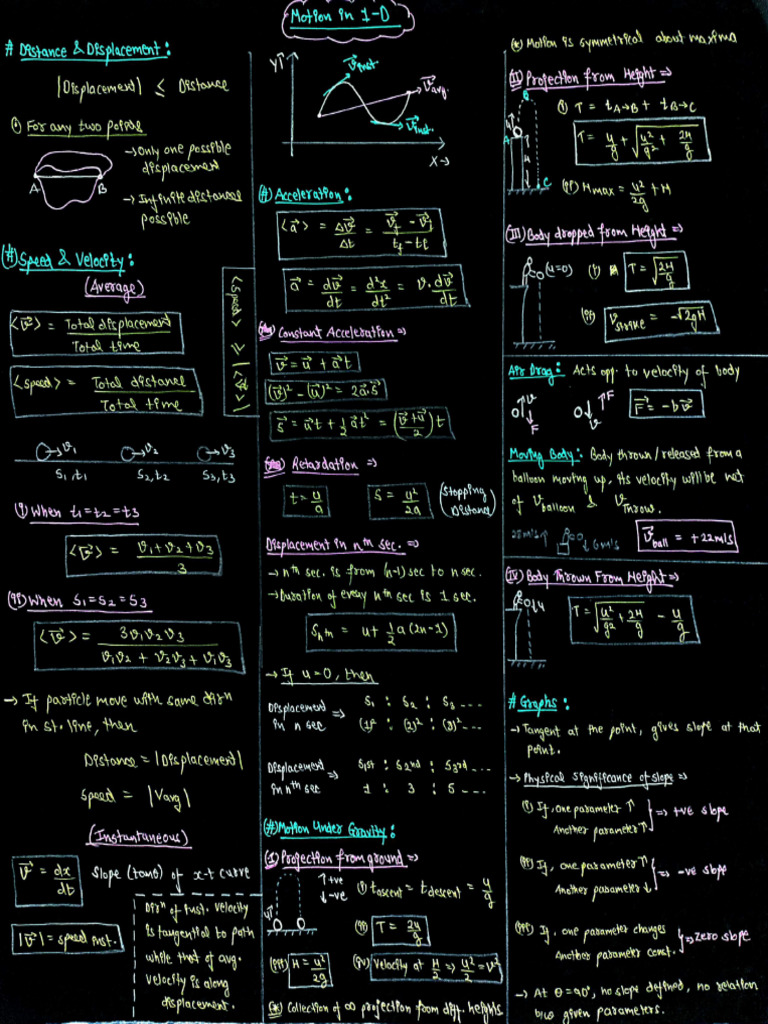 Motion in 1-D
# Distance & Displacement:
|Displacement| ≤ Distance
(i) For any two points
→ Only one possible
displacement
→ Infinite distances
possible
A B
(#) Speed & Velocity:
(Average)
<v⃗> = Total displacement / Total time
<speed> = Total distance / Total time
<speed> ≥ |<v⃗>|
v1 v2 v3
S1,t1 S2,t2 S3,t3
(i) When t1=t2=t3
<v⃗> = (v1+v2+v3) / 3
(ii) When S1=S2=S3
<v⃗> = 3v1v2v3 / (v1v2 + v2v3 + v1v3)
→ If particle move with same dirn
in st. line, then
Distance = |Displacement|
Speed = |Vavg|
(Instantaneous)
v⃗ = dx/dt
Slope (tanθ) of x-t curve
|v⃗| = speed inst.
Dirn of inst. velocity
is tangential to path
while that of avg.
velocity is along
displacement.
Y↑
v⃗inst.
v⃗avg.
v⃗inst.
X→
(#) Acceleration:
<a⃗> = Δv⃗/Δt = (v⃗f - v⃗i) / (tf - ti)
a⃗ = dv⃗/dt = d²x/dt² = v.dv⃗/dt
Constant Acceleration ⇒
v⃗ = u⃗ + a⃗t
(v⃗)² - (u⃗)² = 2a⃗.s⃗
s⃗ = u⃗t + 1/2 a⃗t² = ((v⃗+u⃗)/2) t
Retardation ⇒
t = u/a
S = u²/2a
(Stopping
Distance)
Displacement in nth sec. ⇒
→ nth sec. is from (n-1) sec to n sec.
→ Duration of every nth sec is 1 sec.
Snth = u + 1/2 a(2n-1)
→ If u=0, then
Displacement in n sec ⇒ S1 : S2 : S3 ...
(1)² : (2)² : (3)² ...
Displacement in nth sec ⇒ S1st : S2nd : S3rd ...
1 : 3 : 5 ...
(#) Motion Under Gravity:
(I) Projection from ground ⇒
↑ +ve
↓ -ve
u↑
(i) tascent = tdescent = u/g
(ii) T = 2u/g
(iii) H = u²/2g
(iv) Velocity at H/2 ⇒ u²/2 = v²
(*) Collection of ∞ projection from diff. heights
(*) Motion is symmetrical about maxima
(II) Projection from Height ⇒
B
u
A
H
C
(i) T = tA→B + tB→C
T = u/g + √(u²/g² + 2H/g)
(ii) Hmax = u²/2g + H
(III) Body dropped from Height ⇒
(u=0)
(i) T = √(2H/g)
(ii) v⃗strike = -√2gH
Air Drag: Acts opp. to velocity of body
↑v ↓F
↑F ↓v
F⃗ = -bv⃗
Moving Body: Body thrown/released from a
balloon moving up, its velocity will be net
of Vballoon & Vthrow.
28m/s↑ ↓6m/s
v⃗ball = +22m/s
(IV) Body Thrown From Height ⇒
↓u
T = √(u²/g² + 2H/g) - u/g
# Graphs:
→ Tangent at the point, gives slope at that
point.
→ Physical Significance of slope ⇒
(i) If, one parameter ↑
Another parameter ↑ ⇒ +ve slope
(ii) If, one parameter ↑
Another parameter ↓ ⇒ -ve slope
(iii) If, one parameter changes
Another parameter const. ⇒ zero slope
→ At θ=90°, no slope defined, no relation
b/w given parameters.